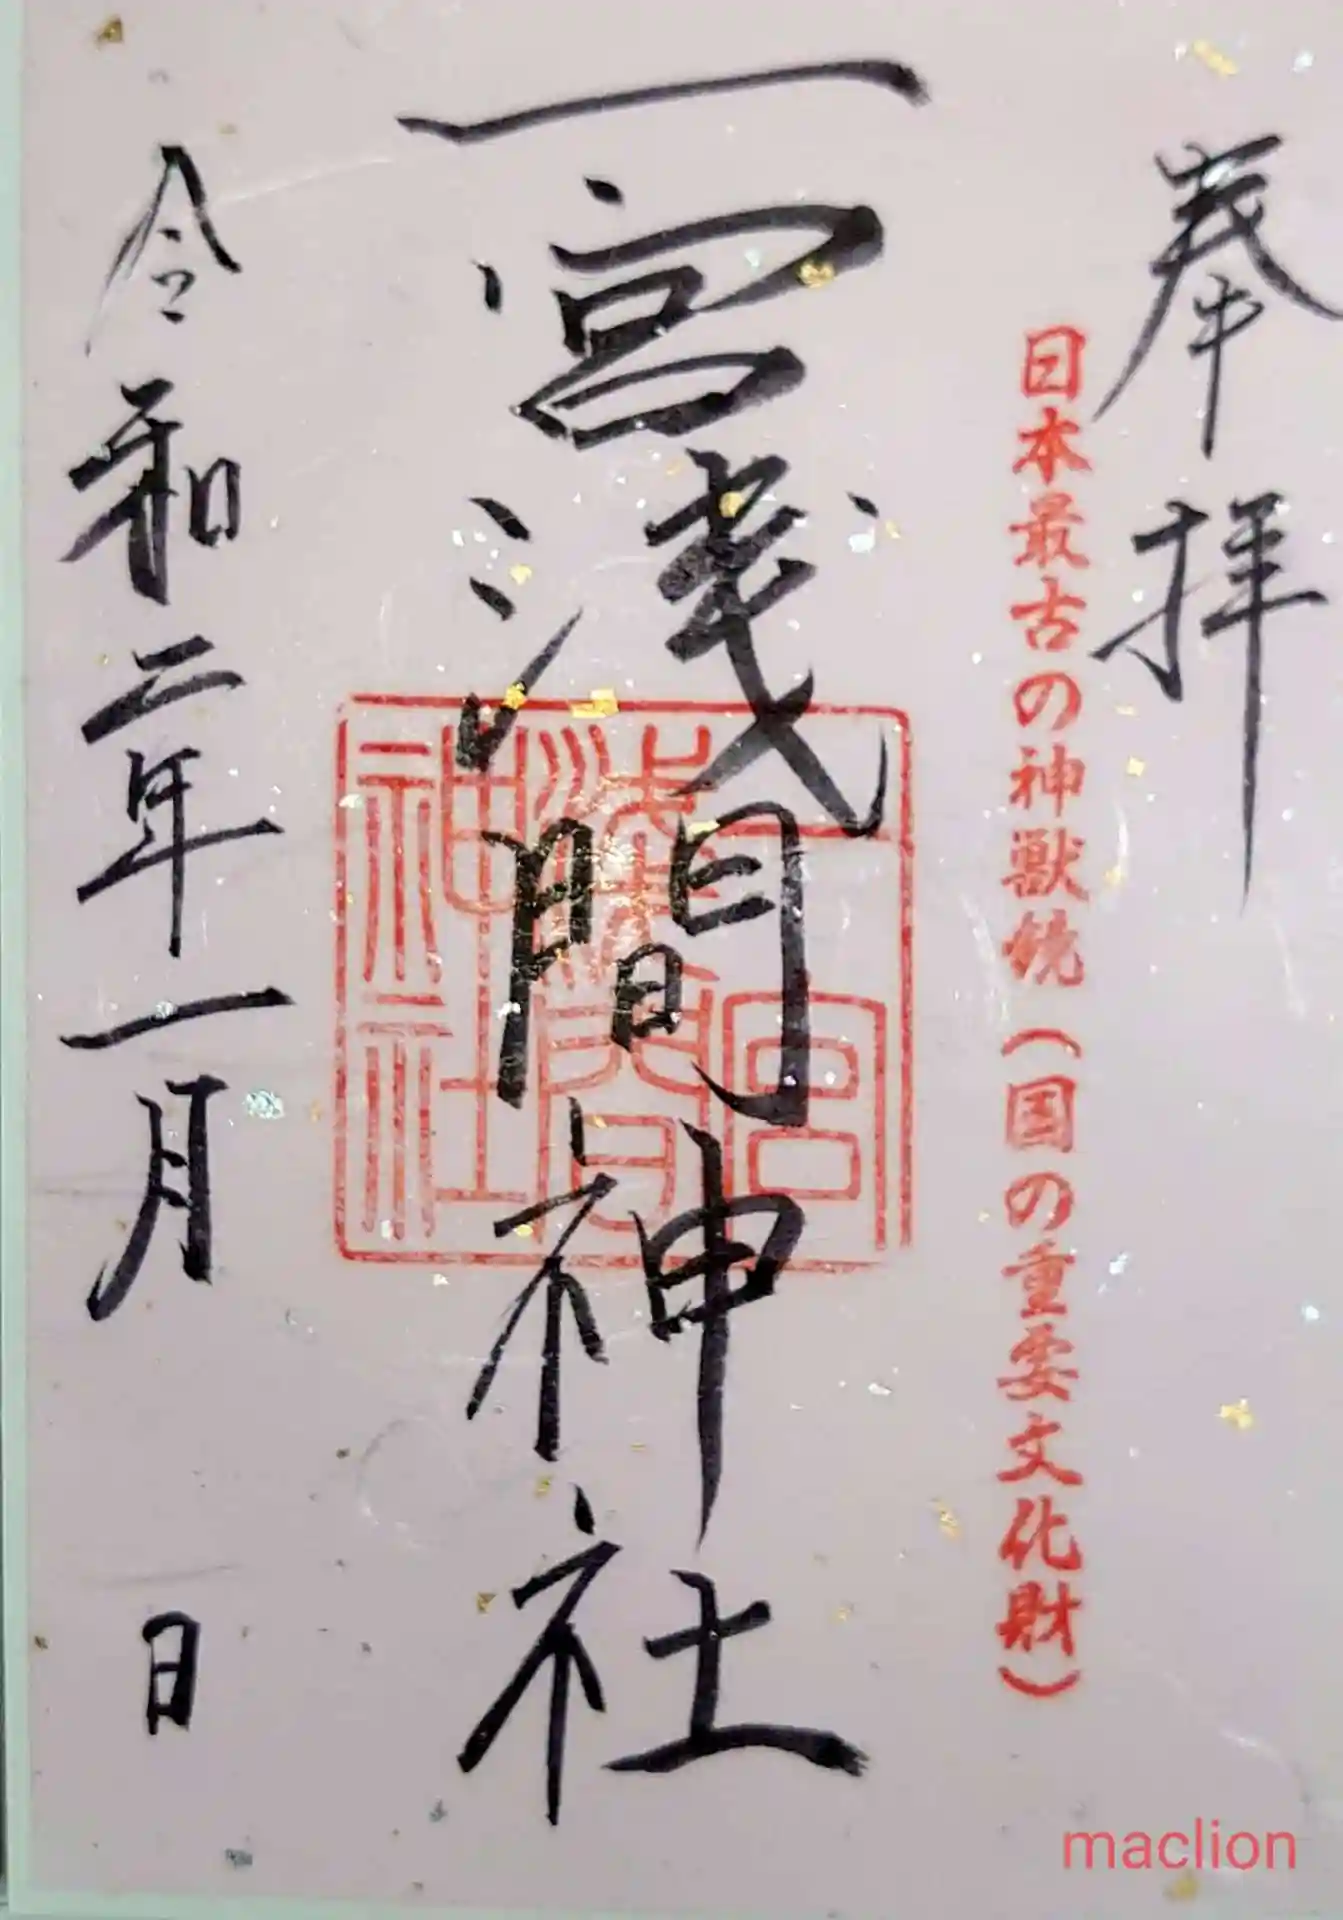 奉拝
日本最古の神獣鏡（国の重要文化財）
一宮浅間神社
一宮
浅間
神社
令和二年一月　日
maclion